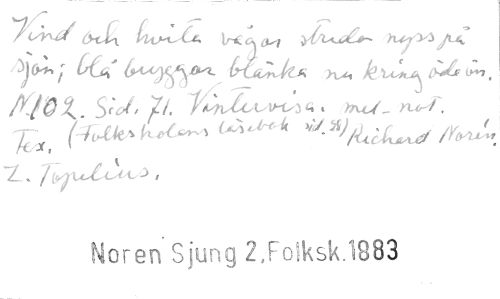 Vind och hvita vågor strida nyss på
sjön; blå bryggor blänka nu kring öde ön.
N.102. Sid. 71. Vintervisa. mel-not.
Tex. (Folkskolans läsebok sid. 58) Richard Norén.
Z. Topelius.
Noren Sjung 2, Folksk. 1883